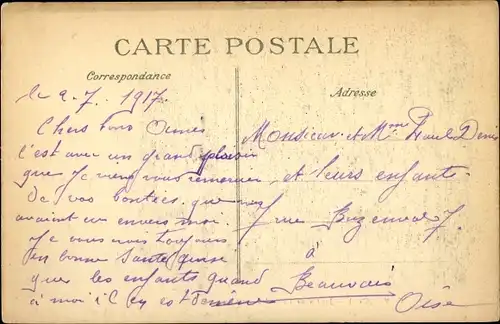 CARTE POSTALE
Correspondance
Adresse
le 9. 7. 1917.
Chers bons Amies
c'est avec un grand plaisir
que Je viens vous remercier
de vos bontées que vous
avaint eu envers moi
Je vous vois toujours
en bonne Santé
que les enfants quand
à moi il en est de même
Monsieur et Mme Paul Denis
et leurs enfants
7 rue Buzenval 7.
à
Beauvais
Oise